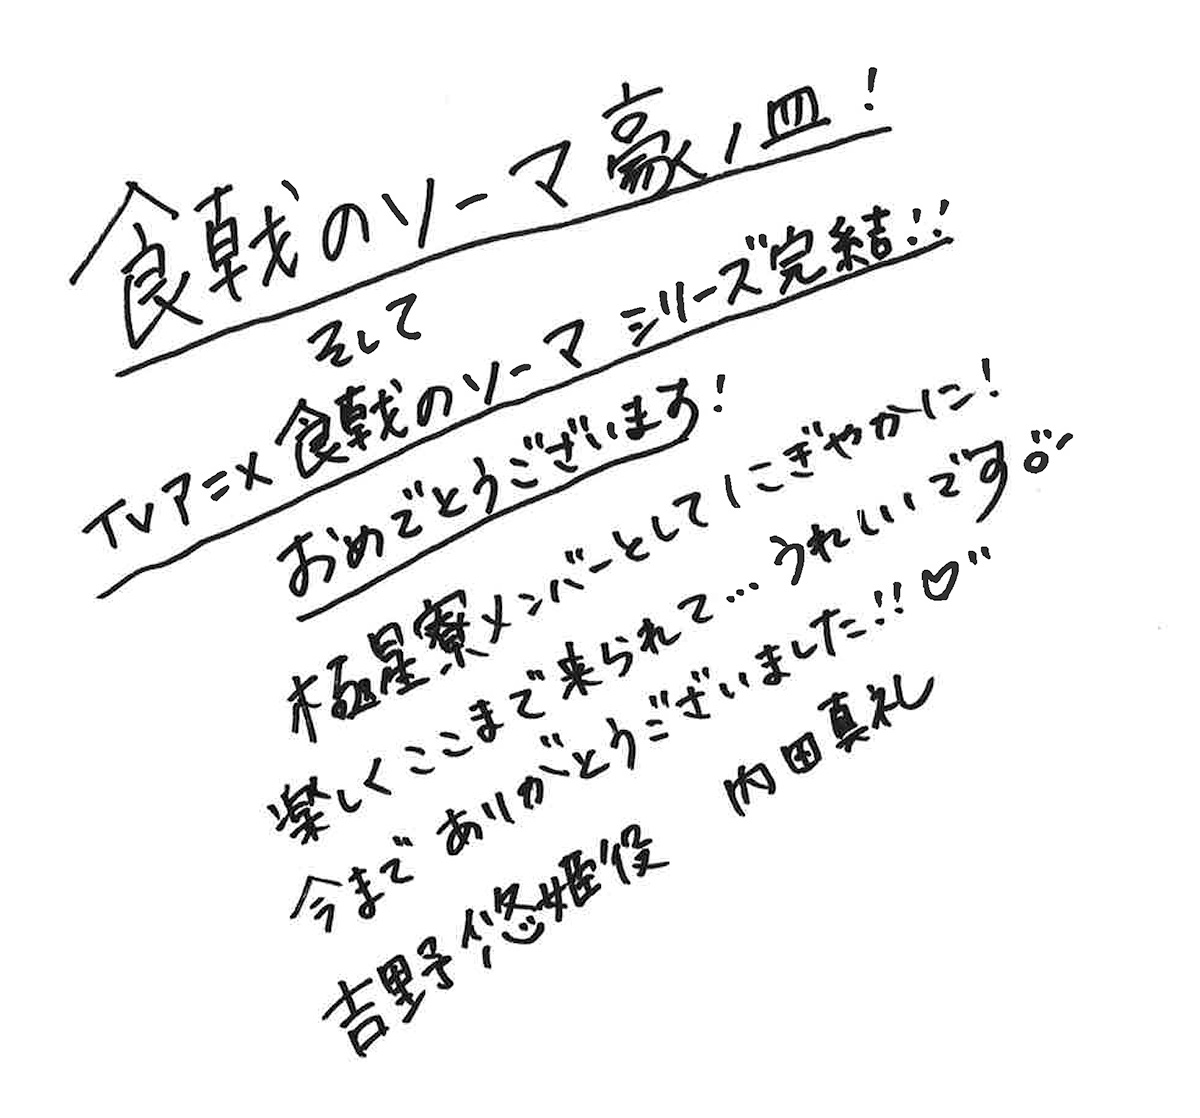 食戟のソーマ 豪ノ皿!
そして
TVアニメ 食戟のソーマ シリーズ完結!!
おめでとうございます!
極星寮メンバーとしてにこぎやかに!
楽しくここまで来られて…うれしいです。
今までありがとうございました!!♡
吉野悠姫役 内田真礼